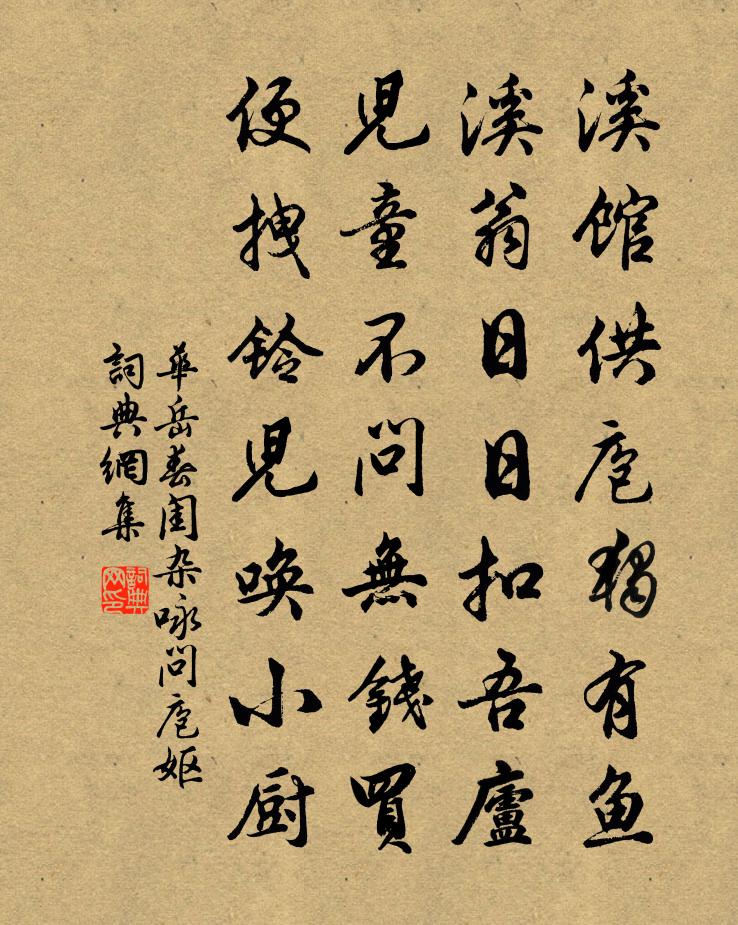 溪館供庖獨有魚
溪翁日日扣吾廬
兒童不問無錢買
便拽鈴兒喚小厨
華岳春閨杂咏問庖妪
詞典網集
詞典网印